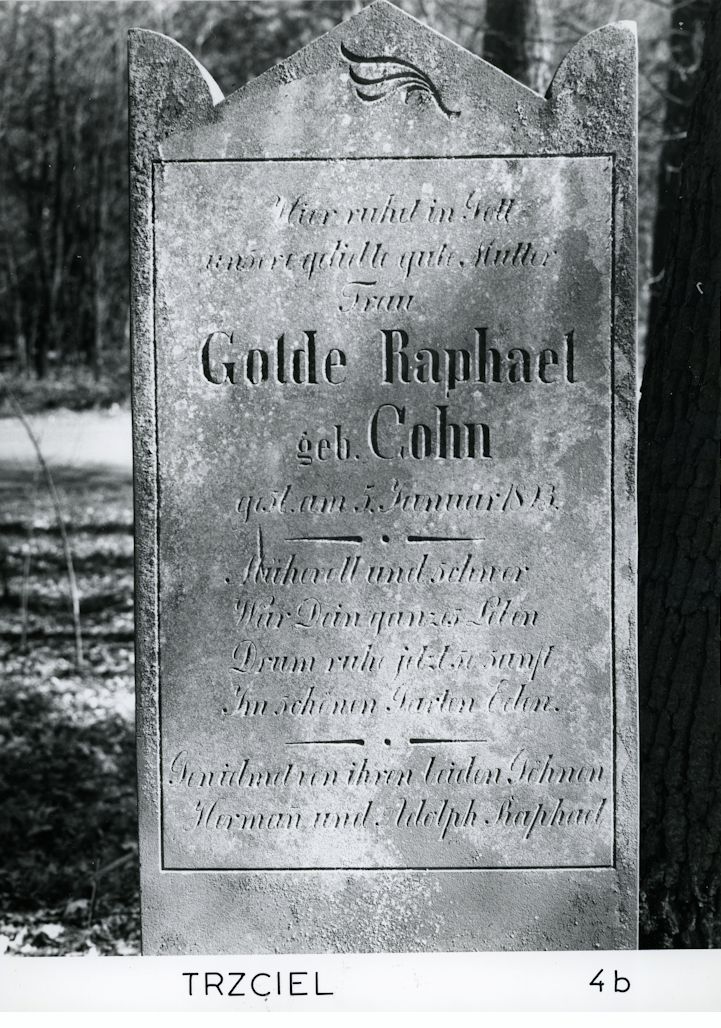 Hier ruhet in Gott
unsere geliebte gute Mutter
Frau
Golde Raphael
geb. Cohn
gest. am 5. Januar
Mühevoll und schwer
War Dein ganzes Leben
Drum ruhe jetzt so sanft
Im schönen Garten Eden.
Gewidmet von ihren beiden Söhnen
Herman und Adolph Raphael
TRZCIEL 4b